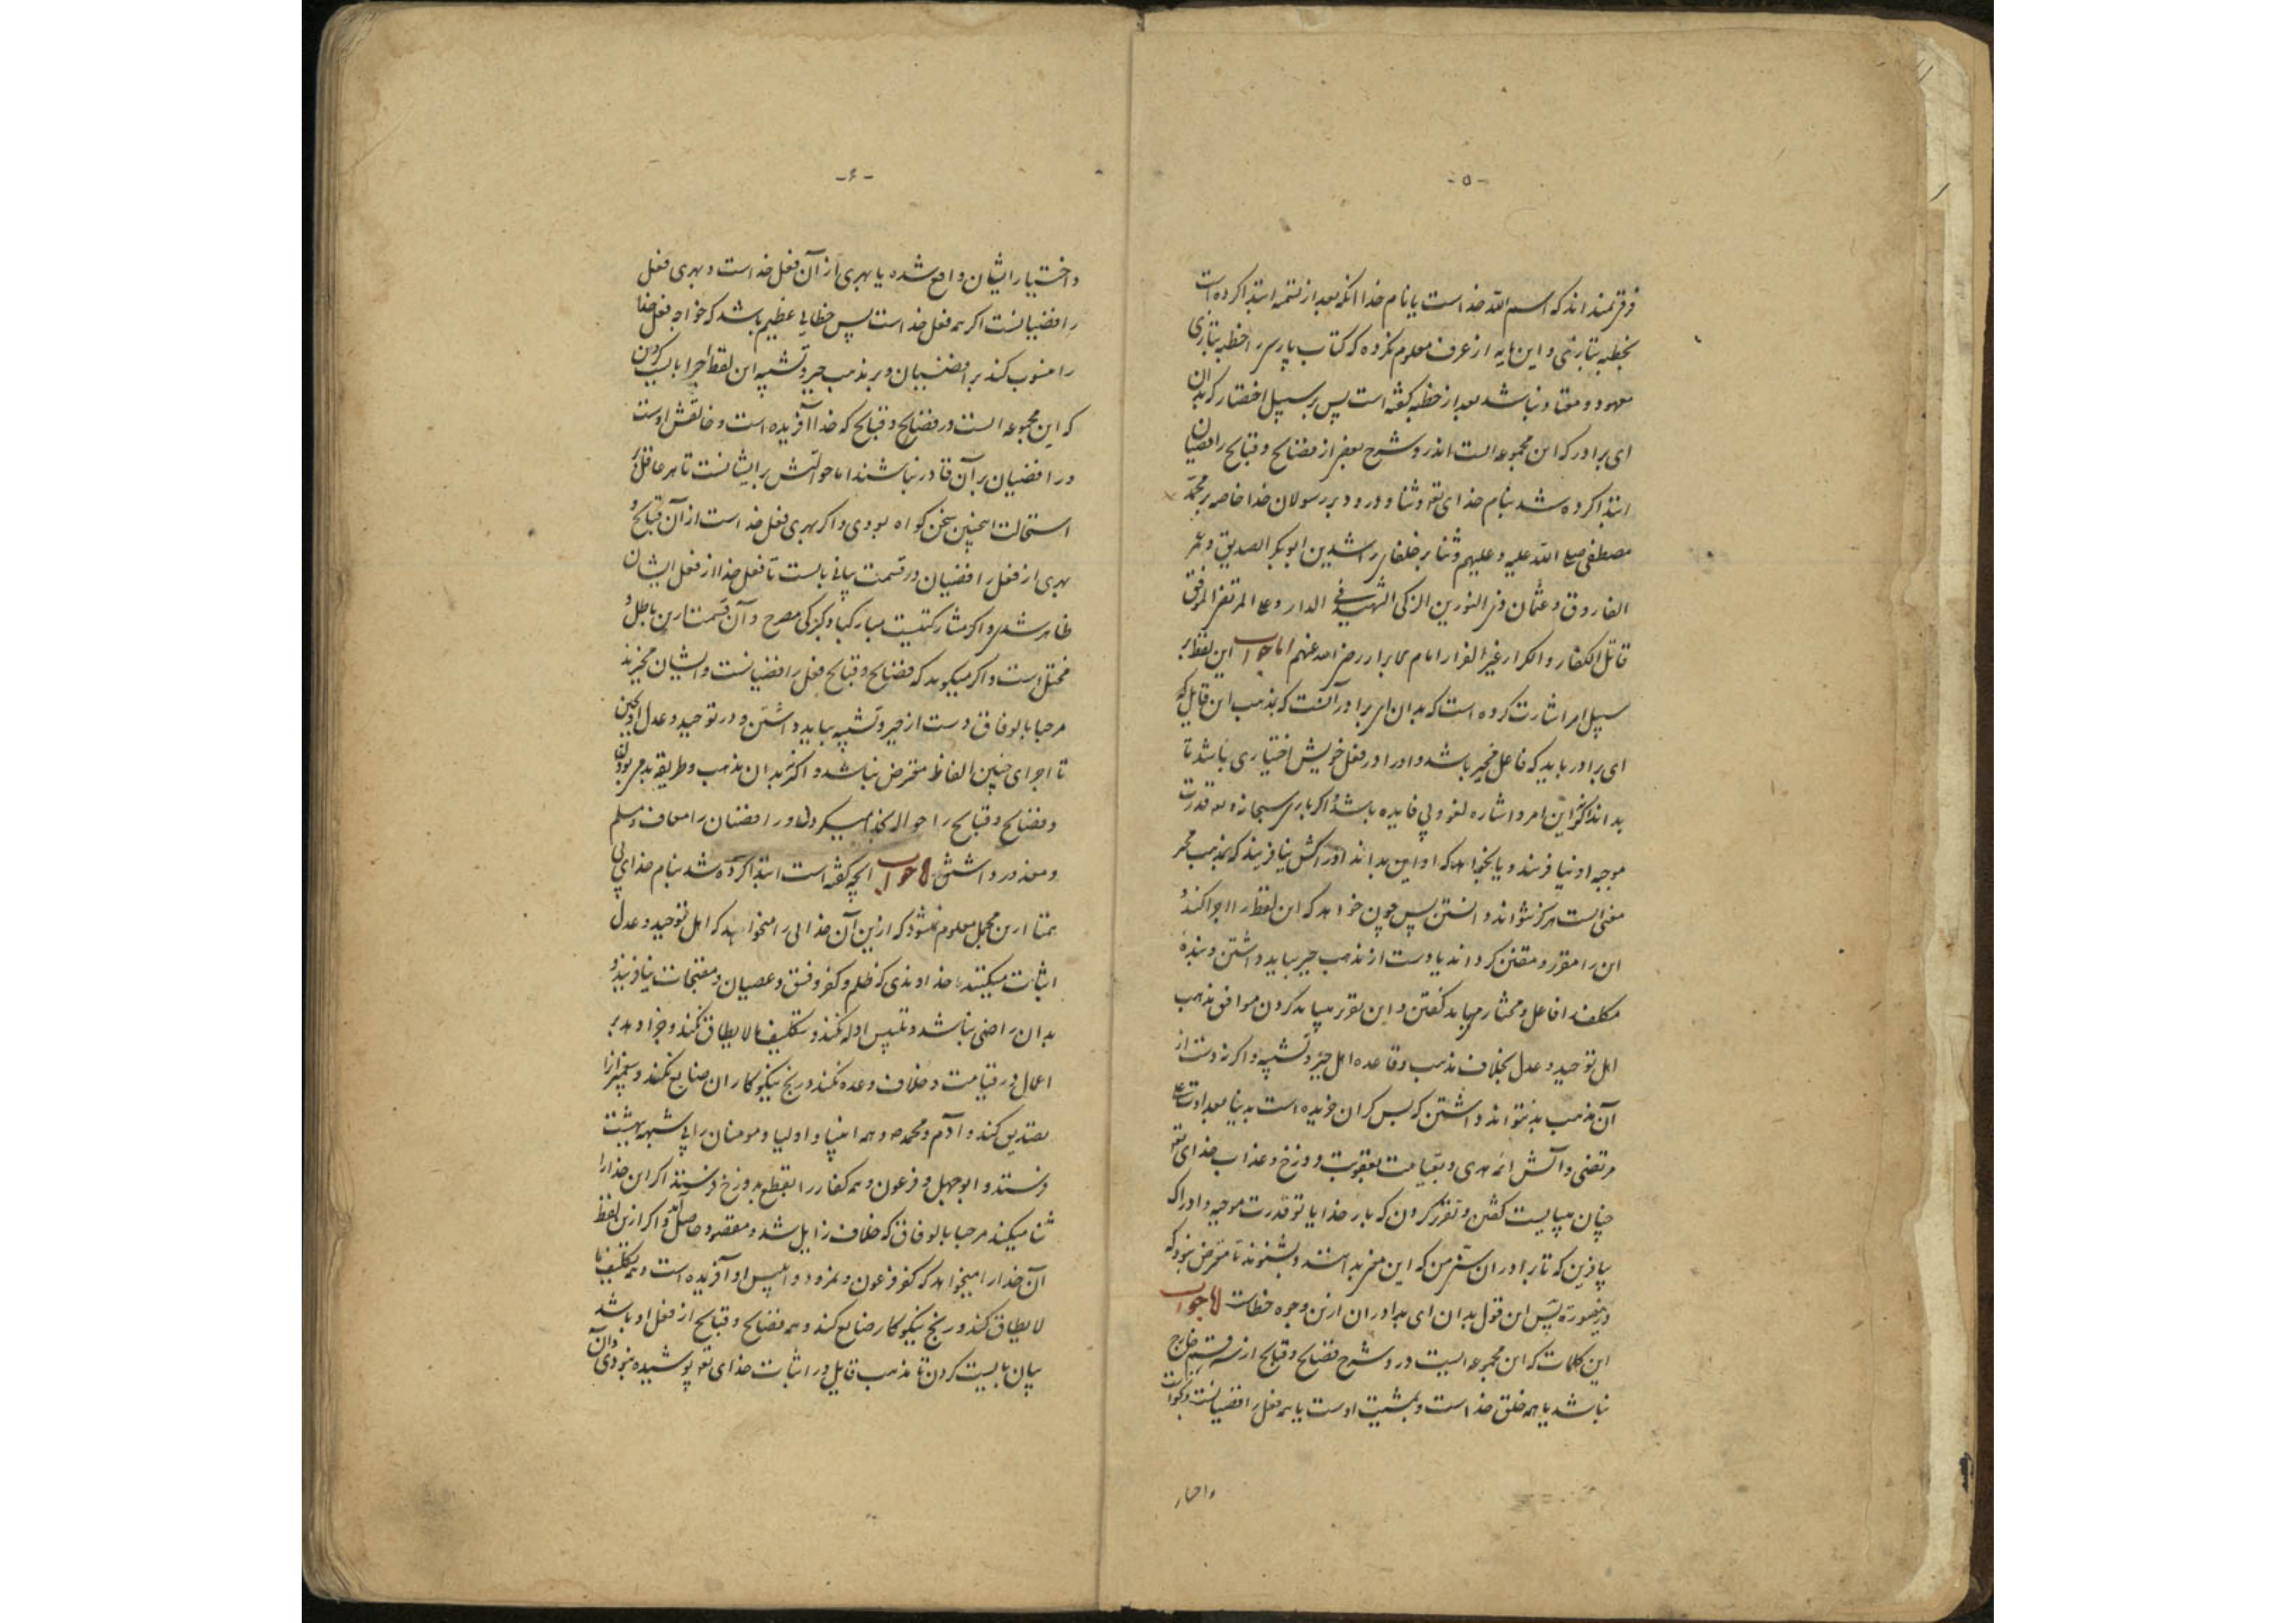 -۵-
فرق نمیداند که اسم الله خداست یا نام خدا آنکه بعد از تتمه ابتدا کرده است
بخطبه بتازی و این مایه از عرف معلوم نکرده که کتاب پارسی را خطبه بتازی
معهود و معتاد نباشد بعد از خطبه گفته است پس بر سبیل اختصار که بدان
ای برادر که این مجموعه ایست اندرو شرح بعضی از فضایح و قبایح رافضیان
ابتدا کرده شد بنام خدای تعو و ثنا و درود بر رسولان خدا خاصه بر محمد
مصطفی صلی الله علیه و علیهم و ثنا بر خلفای راشدین ابوبکر الصدیق و عمر
الفاروق و عثمان ذی النورین الزکی الشهید فی الدار و علی المرتضی الموفق
قاتل الکفار و الکرار غیر الفرار امام الابرار رضی الله عنهم اما جواب این لفظ بر
سبیل امر اشارت کرده است که بدان ای برادر آنست که بمذهب این قایل که
ای برادر باید که فاعل مخیر باشد و او را در فعل خویش اختیاری باشد تا
بداند اگر نه این امر و اشاره لغو و بی فایده باشد و اگر باری سبحانه تعو قدرت
موجبه او نیافریند و یا نخواهد که او این بداند و ادراکش نیافریند که بمذهب مجبر
معنی است هرگز نتواند دانستن پس چون خواهد که این لفظ را اجرا کند و
این را مقرر و مقنن گرداند یا دست از مذهب جبر بباید داشتن و بنده
مکلف را فاعل و مختار می‌باید گفتن و این تقریر میباید کردن موافق مذهب
اهل توحید و عدل بخلاف مذهب و قاعده اهل جبر و تشبیه و اگر نه دست از
آن مذهب بد نتواند داشتن که بس گران خریده است بدینا بعداوت علی
مرتضی و آلش ائمه هدی و بقیامت بعقوبت دوزخ و عذاب خدای تعو
چنان میبایست گفتن و تقریر کردن که بار خدایا تو قدرت موجبه و ادراک
بیافرین که تا برادران سنی من که این مخبر بدانند و بشنوند تا متعرض نبود که
درینصورة پس این قول بدان ای برادران ازین وجوه خطاست اما جواب
این کلمات که این مجموعه ایست درو شرح فضایح و قبایح از سه قسم خارج
نباشد یا همه خلق خداست و بمشیت اوست یا همه فعل رافضیانست و بکواست
واختیار
-۶-
و اختیار ایشان واقع شده یا بهری از آن فعل خداست و بهری فعل
رافضیانست اگر همه فعل خداست پس خطایی عظیم باشد که خواجه فعل خدا
را منسوب کند برافضیان و بر مذهب جبر و تشبیه این لفظ اجرا بایست کردن
که این مجموعه ایست در فضایح و قبایح که خدا آفریده است و خالقش اوست
و رافضیان بر آن قادر نباشند اما حوالتش برایشانست تا هر عاقل بر
استحالت اینچنین سخن گواه بودی و اگر بهری فعل خداست از آن قبایح و
بهری از فعل رافضیان در قسمت بیانی بایست تا فعل خدا از فعل ایشان
ظاهر شدی و اگر مشارکتیست مبارکباد گبرکی مصرح و آن قسمت ازین باطل و
مختل است و اگر میگوید که فضایح و قبایح فعل رافضیانست و ایشان مخیرند
مرحبا بالوفاق دست از جبر و تشبیه بباید داشتن و در توحید و عدل آویختن
تا اجرای چنین الفاظ معترض نباشد و اگر نه بدان مذهب و طریقه بد می بودن
و فضایح و قبایح را حواله بخدا میکردن و رافضیان را معاف و مسلم
و معذور داشتن اما جواب آنچه گفته است ابتدا کرده شد بنام خدای بی
همتا ازین مجمل معلوم نمیشود که ازین آن خدایی را میخواهد که اهل توحید و عدل
اثبات میکنند خداوندی که ظلم و کفر و فسق و عصیان و مقبحات نیافریند و
بدان راضی نباشد و تلبیس ادله نکند و تکلیف مالایطاق نکند و جزا دهد بر
اعمال در قیامت و خلاف وعده نکند و رنج نیکوکاران ضایع نکند و پیغمبرانرا
تصدیق کند و آدم و محمد ص و همه انبیا و اولیا و مومنان را بی شبهه بهشت
فرستد و ابوجهل و فرعون و همه کفار را بقطع بدوزخ فرستد اگر این خدا را
ثنا میکند مرحبا بالوفاق که خلاف زایل شد و مقصود حاصل آمد و اگر ازین لفظ
آن خدا را میخواهد که کفر فرعون و نمرود و ابلیس او آفریده است و همه تکلیف ما
لایطاق کند و رنج نیکوکار ضایع کند و همه فضایح و قبایح از فعل او باشد
بیان بایست کردن تا مذهب قایل در اثبات خدای تعو پوشیده نبودی و آن